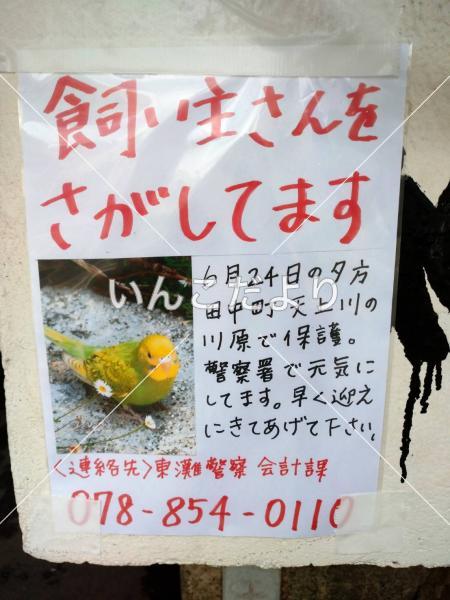 飼い主さんを
さがしてます
6月24日の夕方
田中町天上川の
川原で保護。
警察署で元気に
してます。早く迎え
にきてあげて下さい。
いんこだより
〈連絡先〉東灘警察 会計課
078-854-0110